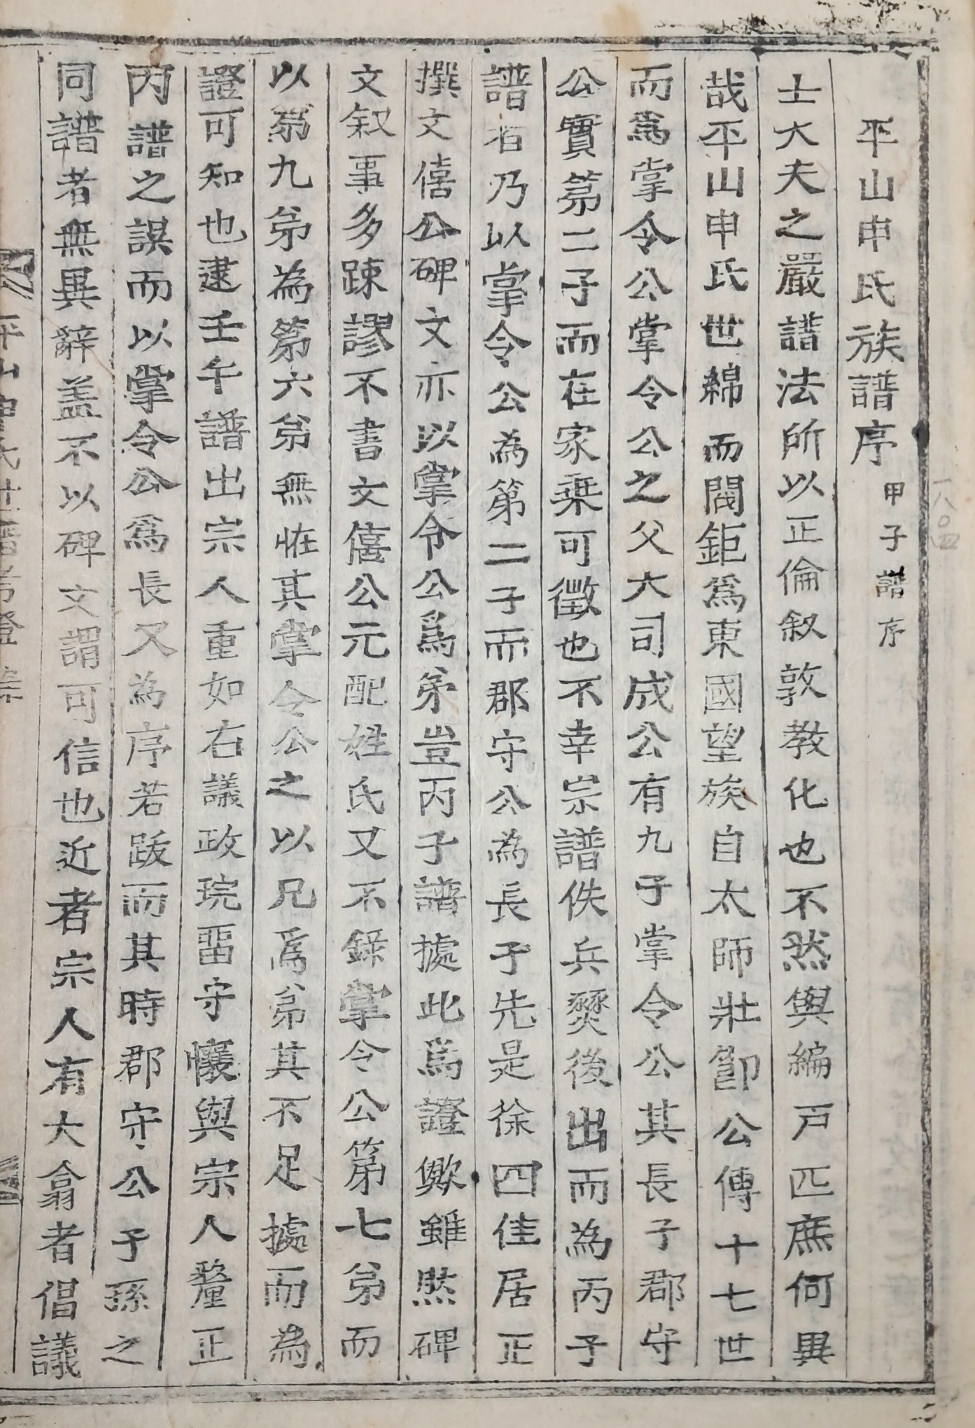 平山申氏族譜序 甲子譜序
士大夫之嚴譜法所以正倫叙敦教化也不然與編戶匹庶何異
哉平山申氏世綿而閥鉅爲東國望族自太師壯節公傳十七世
而爲掌令公掌令公之父大司成公有九子掌令公其長子郡守
公實第二子而在家乗可徵也不幸宗譜佚兵燹後出而為丙子
譜者乃以掌令公為第二子而郡守公為長子先是徐四佳居正
撰文僖公碑文亦以掌令公爲弟豈丙子譜據此爲證歟雖然碑
文叙事多踈謬不書文僖公元配姓氏又不錄掌令公第七弟而
以第九弟為第六弟無恠其掌令公之以兄爲弟其不足據而為
證可知也逮壬午譜出宗人重如右議政琓畱守懹與宗人釐正
丙譜之誤而以掌令公爲長又為序若跋而其時郡守公子孫之
同譜者無異辭盖不以碑文謂可信也近者宗人有大翕者倡議
平山申氏世譜考證
一八〇四